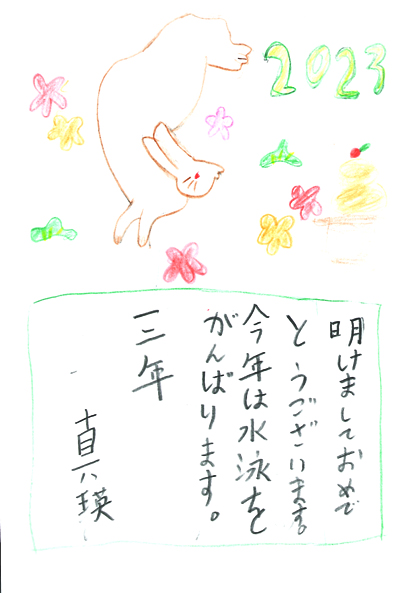 2023
明けましておめで
とうございます。
今年は水泳を
がんばります。
三年
真瑛